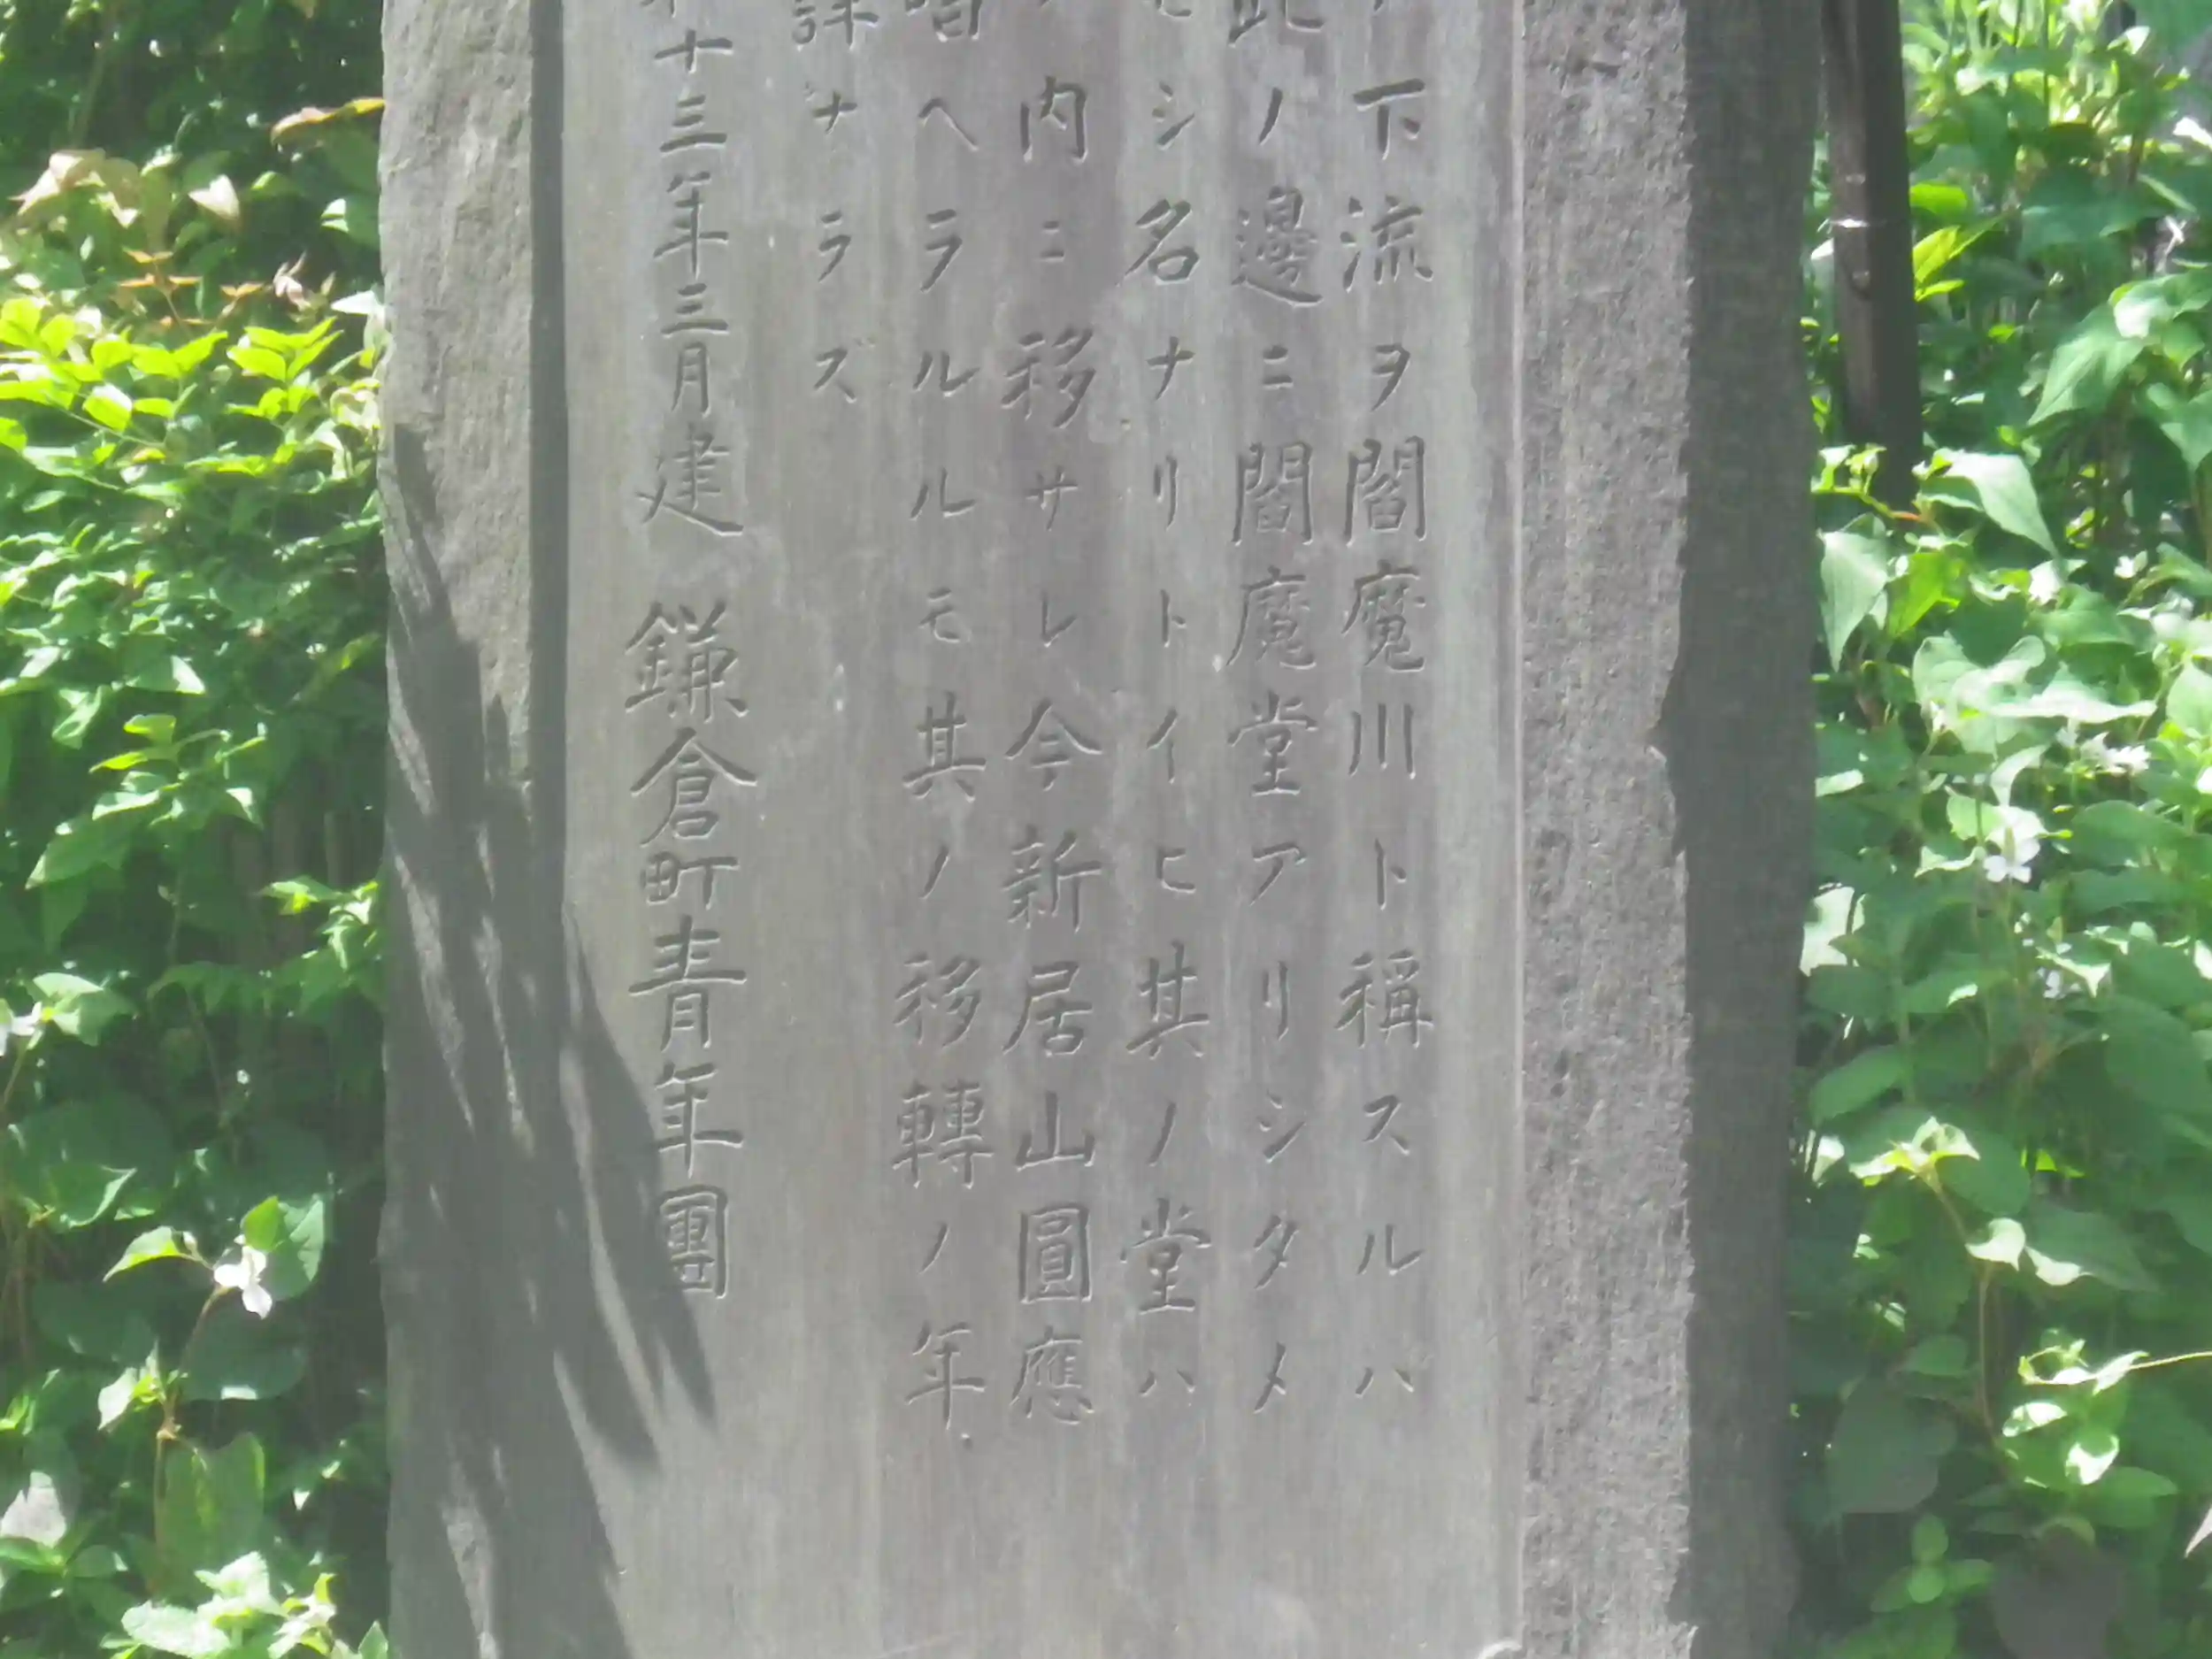 下流ヲ閻魔川ト稱スルバ
此ノ邊ニ閻魔堂アリシタメ
モシ名ナリトイヒ其ノ堂ハ
内ニ移サレ今新居山圓應
唱ヘラルルモ其ノ移轉ノ年
詳ナラズ
十三年三月建 鎌倉町青年團